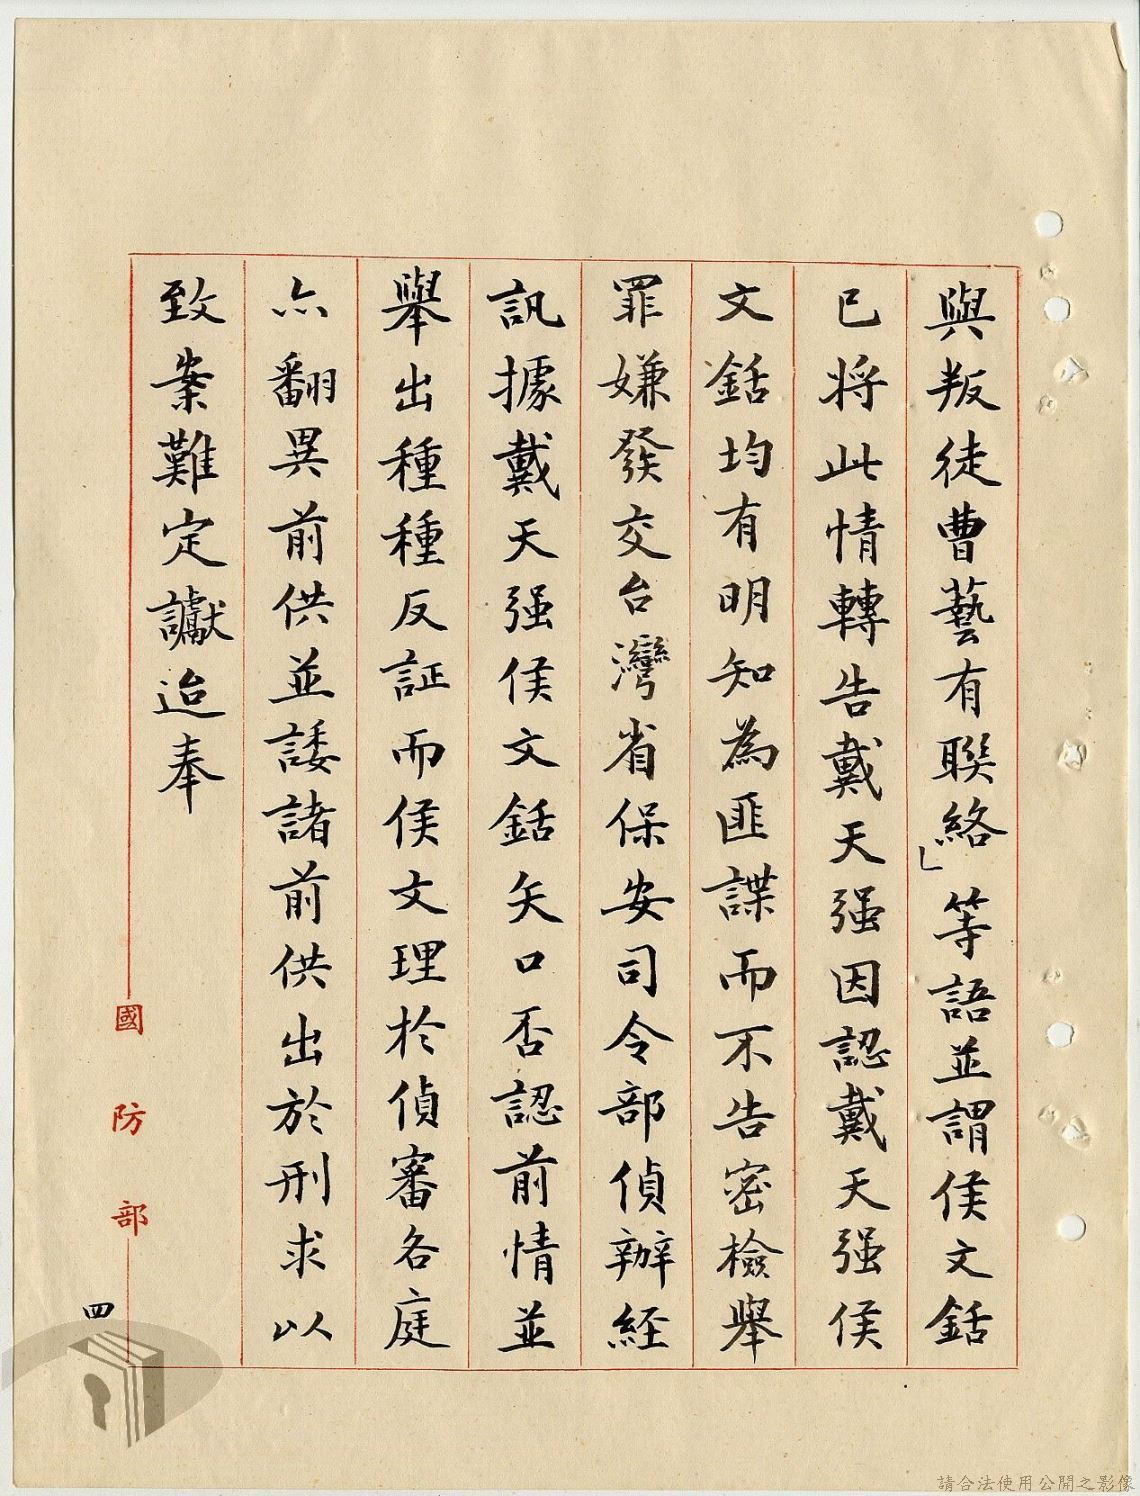 與叛徒曹藝有聯絡」等語並謂侯文銛
已將此情轉告戴天强因認戴天强侯
文銛均有明知為匪諜而不告密檢舉
罪嫌發交台灣省保安司令部偵辦經
訊據戴天强侯文銛矢口否認前情並
舉出種種反証而侯文理於偵審各庭
亦翻異前供並諉諸前供出於刑求以
致案難定讞迨奉
國防部
四
請合法使用公開之影像